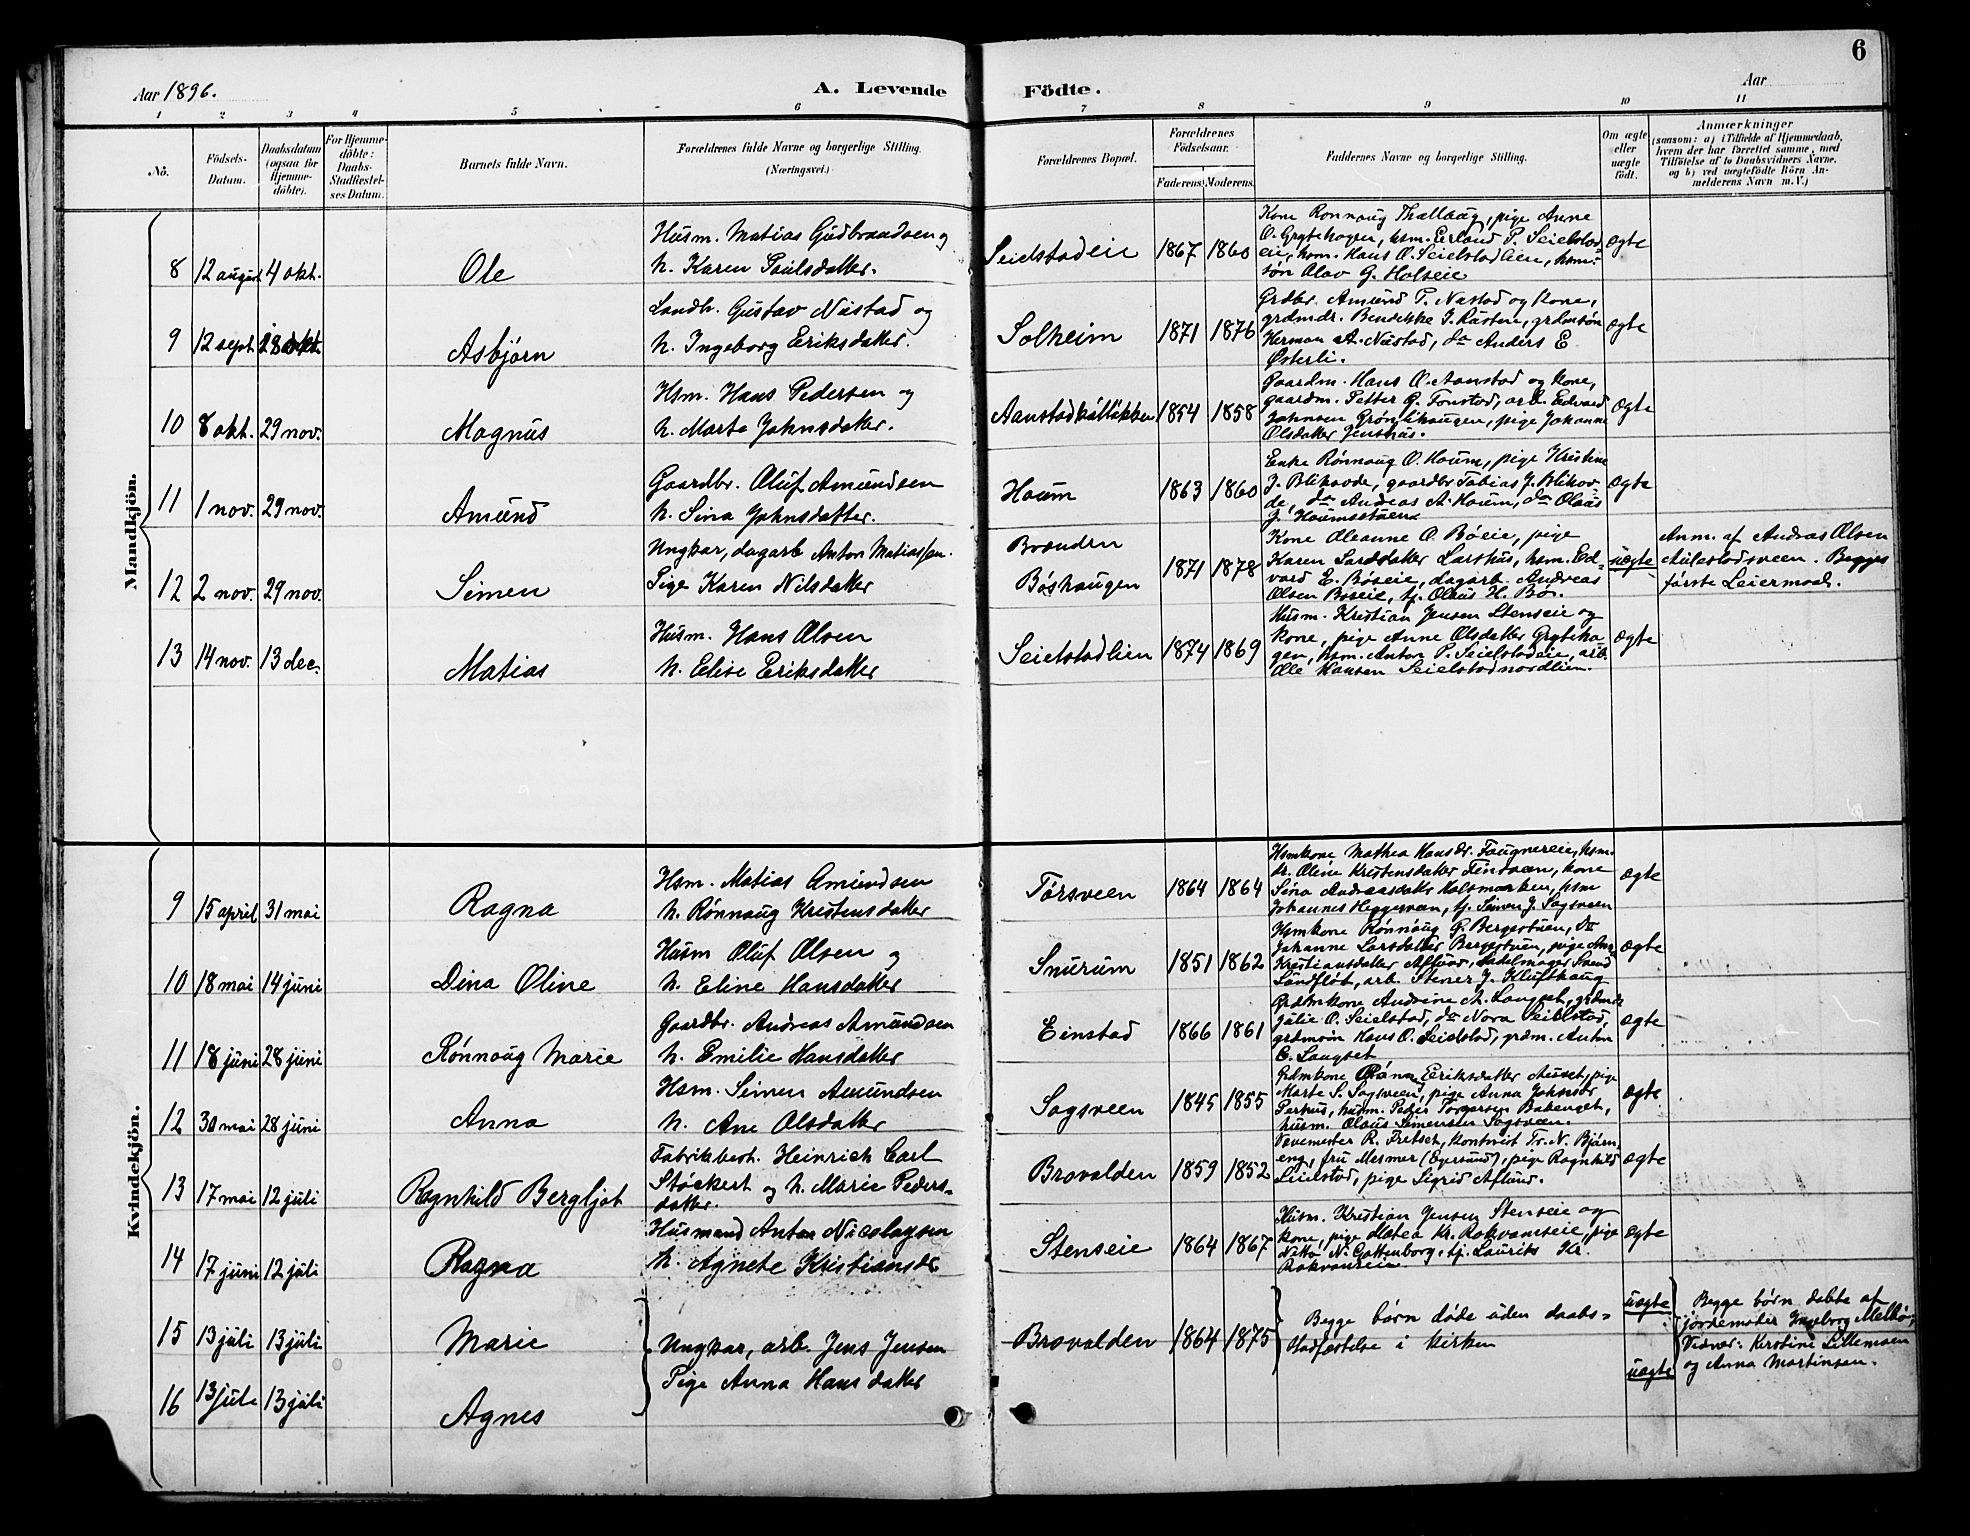 6
Aar 1896.
A. Levende
Födte.
Aar
1 2 3 4 5 6
7 8 9 10 11
No.
Födsels-
Datum.
Daabsdatum
(ogsaa for
Hjemme-
döbte).
For Hjemme-
döbte:
Daabs-
Stadfæstel-
ses Datum.
Barnets fulde Navn.
Forældrenes fulde Navne og borgerlige Stilling.
(Næringsvei.)
Forældrenes Bopæl.
Forældrenes
Födselsaar.
Faderens. Moderens.
Faddernes Navne og borgerlige Stilling.
Om ægte
eller
uægte
født.
Anmærkninger
(saasom: a) i Tilfælde af Hjemmedaab,
hvem der har forrettet samme, med
Tilföielse af to Daabsvidners Navne,
og b) ved uægtefödte Börn An-
melderens Navn m. V.)
Mandkjön.
8 12 august 4 okt.
Ole
Husm. Matias Gudbrandsen og
h. Karen Paulsdatter.
Seielstadeie 1867 1860
Kone Rønnaug Thallaug, pige Anne
O. Grytehagen, hsm. Erland P. Seielstad
eie, hsm. Hans O. Seielstadlien, hsm:
søn Olav G. Holseie
ægte
9 12 sept. 18 okt.
Asbjørn
Landh. Gustav Nustad og
h. Ingeborg Eriksdatter.
Solheim 1871 1876
Grdbr. Amund P. Nustad og kone,
grdmdr. Bendikke J. Rusten, grdmsøn
Herman A. Nustad, do Anders E
Østerli.
ægte
10 8 okt. 29 nov.
Magnus
Hsm. Hans Pedersen og
h. Marte Johnsdatter.
Aanstadkålløkken 1854 1858
Gaardm. Hans O. Aanstad og kone,
gaardm. Petter G. Fonstad, arb. Edvard
Johnsen Grønlihaugen, pige Johanne
Olsdatter Jenshus.
ægte
11 1 nov. 29 nov.
Amund
Gaardbr. Oluf Amundsen
h. Sina Johnsdatter.
Houm 1863 1860
Enke Rønnaug O. Houm, pige Kristine
J. Blihovde, gaardbr Tobias J. Blihov-
de, do Andreas A. Houm, do Olaus
J. Houmsstuen
ægte
12 2 nov. 29 nov.
Simen
Ungkar, dagarb Anton Matiassen.
Pige Karen Nilsdatter
Brænden
Bøshaugen 1871 1878
Kone Oleanne O. Bøeie, pige
Karen Larsdatter Larshus, hsm. Ed-
vard E. Bøseie, dagarb. Andreas
Olsen Bøseie, tj. Olaus H. Bø.
uægte
Anm. af Andras Olsen
Aulestadsveen. Begges
første Leiermaal.
13 14 nov. 13 dec.
Matias
Husm. Hans Olsen
h. Elise Eriksdatter
Seielstadlien 1874 1869
Husm. Kristian Jensen Stenseie og
kone, pige Anne Olsdatter Gryteha-
gen, hsm. Anton P. Seielstadeie, arb.
Ole Hansen Seielstadnordlien.
ægte
Kvindekjön.
9 15 april 31 mai
Ragna
Hsm. Matias Amundsen
h. Rønnaug Kristensdatter
Tørsveen 1864 1864
Hsmkone Mathea Hansdr. Faugnereie, hsm.
dr. Oline Kristensdatter Findsveen, kone
Sina Andreasdatter Holsmarken, hsm
Johannes Heggesveen, tj. Simen J. Sagsveen
ægte
10 18 mai 14 juni
Dina Oline
Husm Oluf Olsen og
h. Eline Hansdatter
Snurum 1851 1862
Hsmkone Rønnaug G. Bergestuen, do
Johanne Larsdatter Bergestuen, pige Ane
Kristiansdatter Aflund, sadelmager Svend
Landfløt, arb. Stener J. Klufthaug
ægte
11 18 juni 28 juni
Rønnaug Marie
Gaardbr. Andreas Amundsen
h. Emilie Hansdatter
Einstad 1866 1861
Grdmkone Andrine A. Langset, grdmdr
Julie O. Seielstad, do Nora Seielstad,
grdmsøn Hans O. Seielstad, grdm. Anton
E. Langset
ægte
12 30 mai 28 juni
Anna
Hsm. Simen Amundsen
h. Ane Olsdatter
Sagsveen 1845 1855
Eriksdatter Auset, pige
Marte S. Sagsveen, pige Anna Johnsdr
Perhus, husm. Peder Torgersen Bakenget,
husm. Olaus Simensen Sagsveen.
ægte
13 17 mai 12 juli
Ragnhild Bergljot
Fabrikbest. Heinrich Carl
Støckert og h. Marie Peders-
datter.
Brovolden 1859 1852
Vævemester R. Fretsch, kontorist Tr. N. Bjørn-
eng, fru Mesmer (Egersund), pige Ragnhild
Seielstad, pige Sigrid Aflund.
ægte
14 17 juni 12 juli
Ragna
Husmand Anton Nicolaysen
h. Agnete Kristiansdr
Stenseie 1864 1867
Husm. Kristian Jensen Stenseie og
kone, pige Matea Kr. Rokvamseie, pige
Netta N. Gottenborg, tj. Laurits Kr.
Rokvamseie
ægte
15 13 juli 13 juli
Marie
Ungkar, arb. Jens Jensen
Pige Anna Hansdatter
Brovolden 1864 1875
Begge børn døde uden daabs-
stadfæstelse i kirken
uægte
uægte
Begge børn døbte af
jordemoder Ingeborg Melbø,
Vidner: Kirstine Lillemoen
og Anna Martinsen.
16 13 juli 13 juli
Agnes